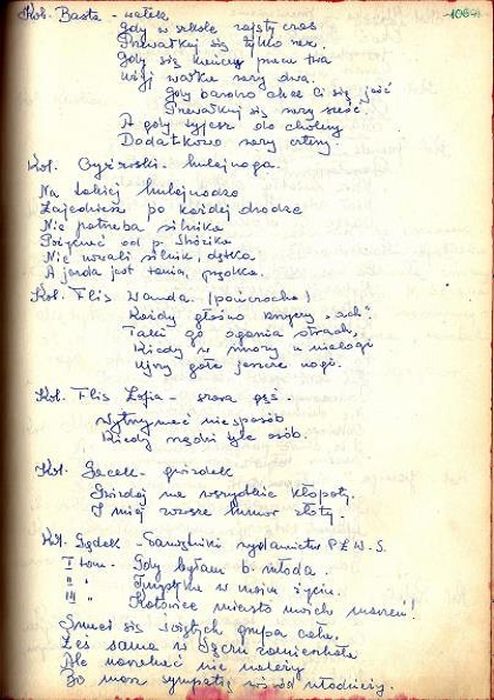 -106-
Kol. Basta - wałek
Gdy w szkole zajęty czas
Przewałkuj się tylko raz.
Gdy się kończy praca twa
Użyj wałka razy dwa.
Gdy bardzo chce Ci się jeść
Przewałkuj się razy sześć.
A gdy tyjesz do cholery
Dodatkowo razy cztery.
Kol. hulajnoga.
Na takiej hulajnodze
Zajedziesz po każdej drodze
Nie potrzeba silnika
Pożyczać od p.
Nie wzali silnik, dętka
A jazda jest tania, prędka.
Kol. Flis Wanda. (pończocha)
Każdy głośno krzyczy "ach"
Taki go ogania strach,
Kiedy w mrozy u nielogi
Ujrzy gołe jeszcze nogi.
Kol. Flis Zofia - szara gęś.
Wytrzymać niesposób
Kiedy rządzi tyle osób.
Kol. Gacek - gwizdek
Gwizdaj na wszystkie kłopoty.
I miej zawsze humor złoty.
Kol. - wydawnictw P.Z.W.S.
I tom. Gdy byłam b. młoda.
II " Turystyka w moim życiu.
III " Katowice miasto moich marzeń!
Smuci się grupa cała.
Żeś sama w Sączu zamieszkała
Ale narzekać nie należy
Bo masz sympatię wśród młodzieży.